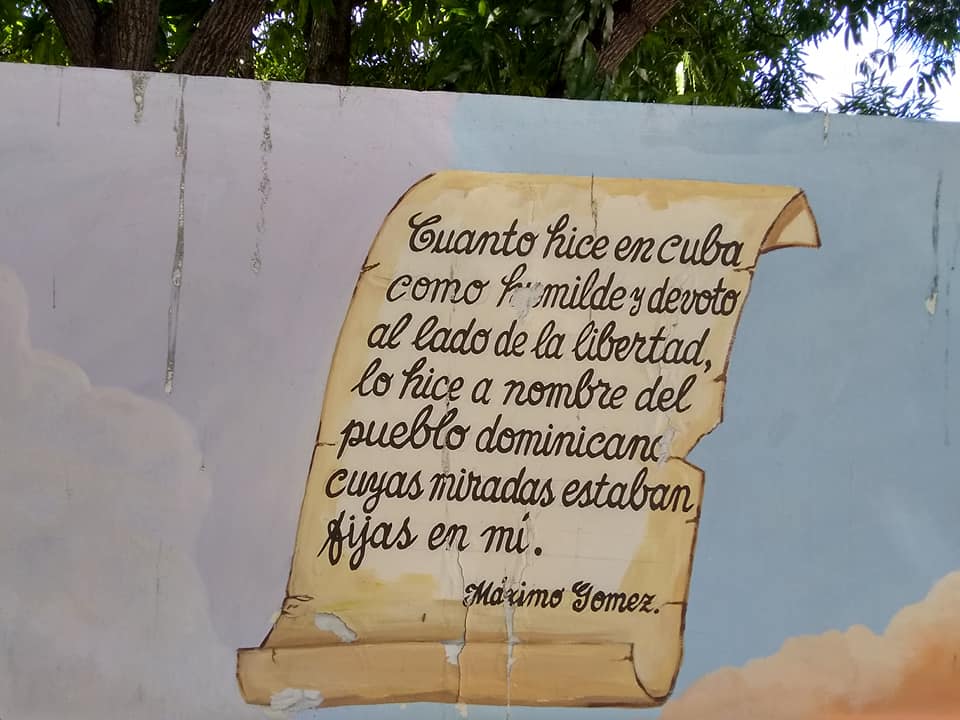 Cuanto hice en cuba
como humilde y devoto
al lado de la libertad,
lo hice a nombre del
pueblo dominicano
cuyas miradas estaban
fijas en mí.
Máximo Gomez.